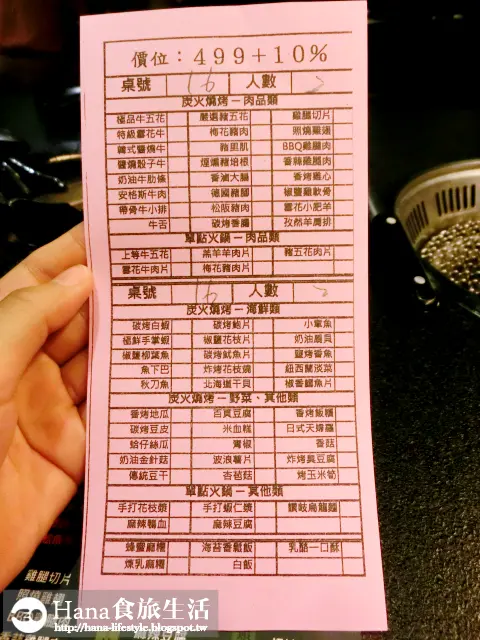 價位：499+10%
桌號 16 人數 2
炭火燒烤－肉品類
極品牛五花 嚴選豬五花 雞腿切片
特級雪花牛 梅花豬肉 照燒雞翅
韓式醬燒牛 豬里肌 BBQ雞腿肉
醬燒骰子牛 煙燻豬培根 香辣雞腿肉
奶油牛肋條 香滷大腸 香烤雞心
安格斯牛肉 德國豬腳 椒鹽雞軟骨
帶骨牛小排 松阪豬肉 雪花小肥羊
牛舌 碳烤香腸 孜然羊肩排
單點火鍋－肉品類
上等牛五花 羔羊羊肉片 豬五花肉片
雪花牛肉片 梅花豬肉片
桌號 16 人數 2
炭火燒烤－海鮮類
碳烤白蝦 碳烤鮑片 小章魚
極鮮手掌蝦 椒鹽花枝片 奶油扇貝
椒鹽柳葉魚 碳烤魷魚片 鹽烤香魚
魚下巴 炸烤花枝燒 紐西蘭淡菜
秋刀魚 北海道干貝 椒香鯛魚片
炭火燒烤－野菜、其他類
香烤地瓜 百頁豆腐 香烤飯糰
碳烤豆皮 米血糕 日式天婦羅
蛤仔絲瓜 青椒 香菇
奶油金針菇 波浪薯片 炸烤臭豆腐
傳統豆干 杏苞菇 烤玉米筍
單點火鍋－其他類
手打花枝漿 手打蝦仁漿 讚岐烏龍麵
麻辣鴨血 麻辣豆腐
蜂蜜麻糬 海苔香鬆飯 乳酪一口酥
煉乳麻糬 白飯
雞腿切片
照燒雞翅
Hana食旅生活
http://hana-lifestyle.blogspot.tw